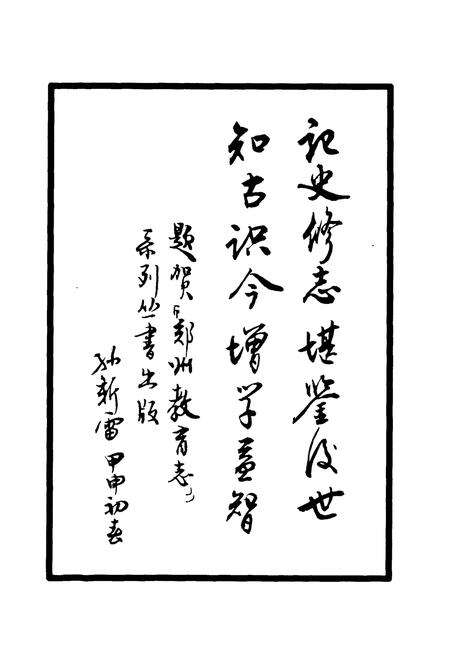 记史修志堪鉴后世
知古识今增学益智
题贺《郑州教育志》
系列丛书出版
孙新雷 甲申初春